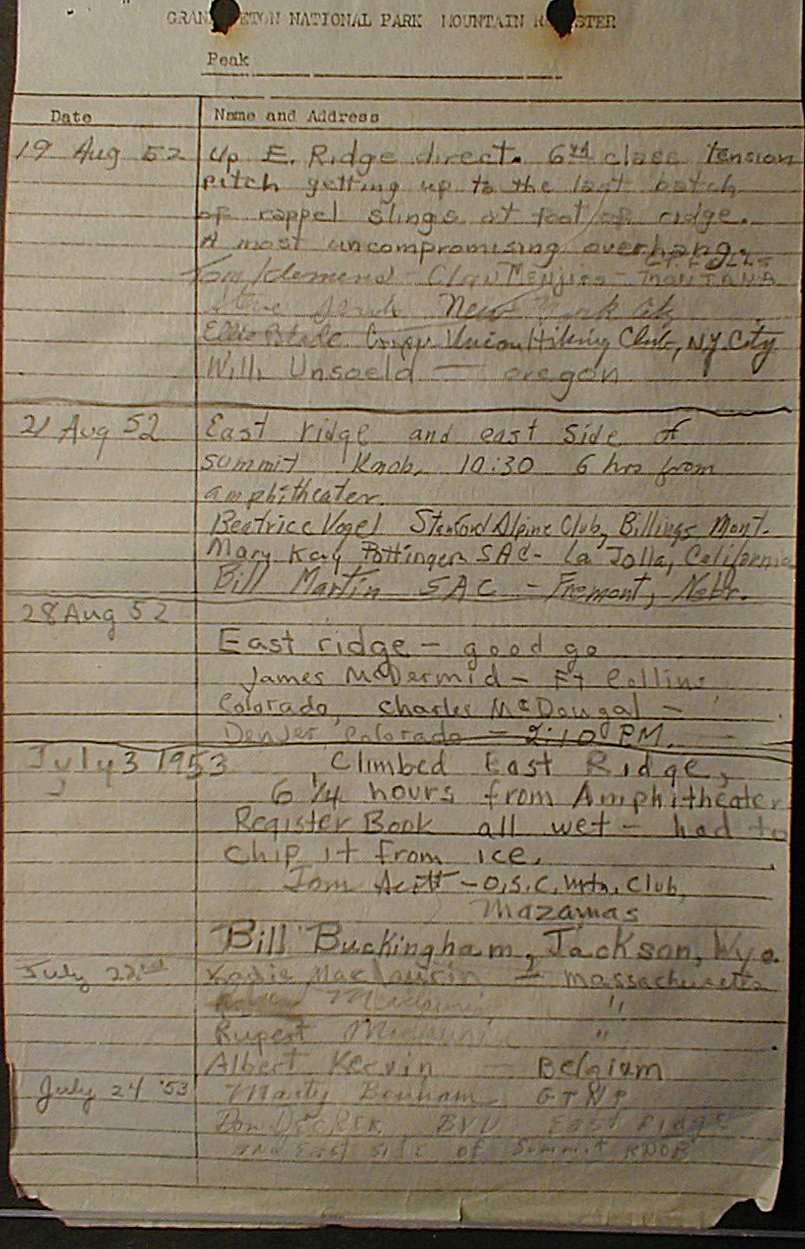 GRAND TETON NATIONAL PARK MOUNTAIN REGISTER
Peak
Date Name and Address
19 Aug 52 Up E. Ridge direct. 6th class tension
pitch getting up to the last batch
of rappel slings at foot of ridge.
A most uncompromising overhang.
MONTANA
New York City
Union Hiking Club, NY City
Willi Unsoeld — Oregon
21 Aug 52 East ridge and east side of
summit Knob. 10:30 6 hrs from
amphitheater.
Beatrice Vogel Stanford Alpine Club, Billings Mont.
Mary Kay Pottinger SAC - La Jolla, California
Bill Martin SAC - Fremont, Nebr.
28 Aug 52
East ridge - good go
James McDermid - Ft Collins
Colorado, Charles McDougal -
Denver Colorado - 2:10 PM.
July 3 1953 Climbed East Ridge,
6 1/4 hours from Amphitheater
Register Book all wet - had to
chip it from ice.
Tom Scott - O.S.C. Mtn. Club,
Mazamas
Bill Buckingham, Jackson, Wyo.
July 22nd - Massachusetts
"
Rupert "
Albert Kervin - Belgium
July 24 '53 Marty Benham GTNP
Don Decker BYU East Ridge
and east side of Summit KNOB